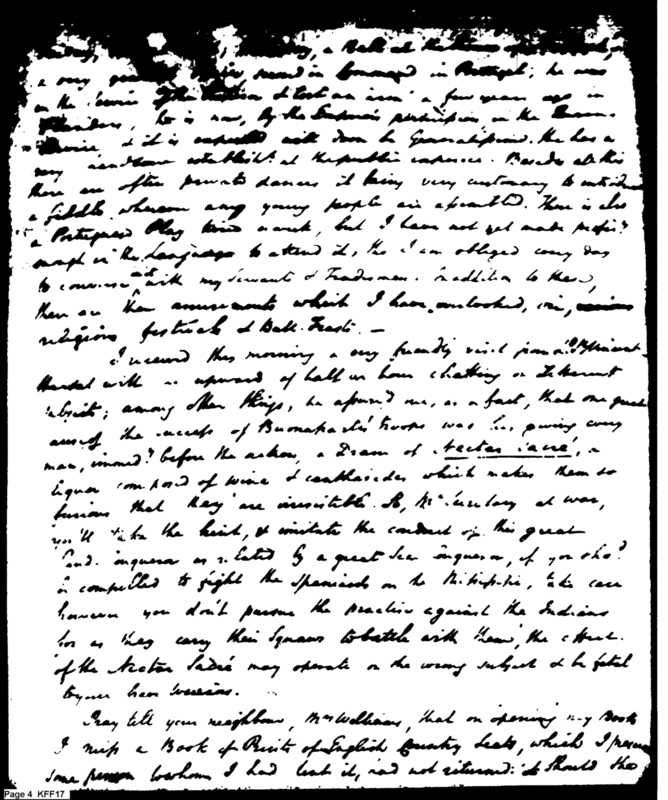 a Ball at the house
a very second in Command in Portugal; he was
in the Service of the & lost an arm a few years ago in
Flanders, he is now, by the Emperor's permission in the
Service & it is expected will soon be Generalissimo. He has a
very handsome establisht. at the public expence. Besides all this
there are often private dances it being very customary to introduce
a fiddle wherever any young people are assembled. There is also
a Portuguese Play twice a week, but I have not yet made
enough in the Language to attend it, tho I am obliged every day
to converse in it with my Servants & Tradesmen. In addition to these,
there are other amusements which I have overlooked, viz,
religious festivals & Bull Feasts. —
I received this morning a very friendly visit from
with us upward of half an hour chatting on different
subjects; among other things, he assured me, as a fact, that one great
cause of the success of Buonaparte's troops was his giving every
man, immedy. before the action, a Dram of Nectar Sacré, a
liquor composed of wine & cantharides which makes them so
furious that they are irresistible. So, Mr. Secretary at war,
you'll take the hint, & imitate the conduct of this great
Land Conqueror as related by a great Sea Conqueror, if you shod.
be compelled to fight the Spaniards on the Mississippi, take care
however you don't pursue the practice against the Indians
for as they carry their Squaws to battle with them, the effect
of the Nectar Sacré may operate on the wrong subject & be fatal
to your brave
Pray tell your neighbour, Mrs Williams, that on opening my Books
I miss a Book of Prints of English Country Seats, which I presume
some person to whom I had lent it, had not returned. Should she
Page 4 KFF17